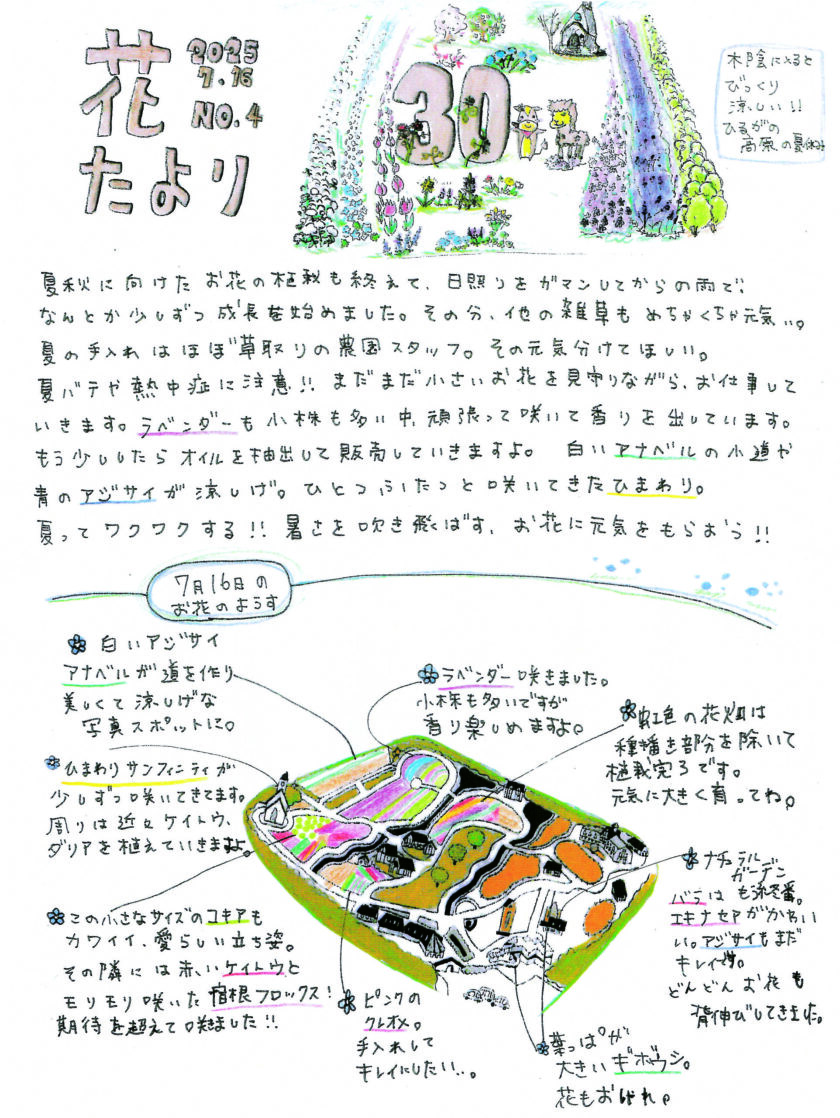 花たより
2025
7.16
NO.4
30
木陰に入ると
びっくり
涼しい!!
ひるがの
高原の夏休み
夏秋に向けたお花の植栽も終えて、日照りをガマンしてからの雨で、
なんとか少しずつ成長を始めました。その分、他の雑草もめちゃくちゃ元気…。
夏の手入れはほぼ草取りの農園スタッフ。その元気分けてほしい。
夏バテや熱中症に注意!! まだまだ小さいお花を見守りながら、お仕事して
いきます。ラベンダーも小株も多い中、頑張って咲いて香りを出しています。
もう少ししたらオイルを抽出して販売していきますよ。 白いアナベルの小道や
青のアジサイが涼しげ。ひとつふたつと咲いてきたひまわり。
夏ってワクワクする!! 暑さを吹き飛ばす、お花に元気をもらおう!!
7月16日の
お花のようす
白いアジサイ
アナベルが道を作り
美しくて涼しげな
写真スポットに。
ラベンダー咲きました。
小株も多いですが
香り楽しめますよ。
虹色の花畑は
種播き部分を除いて
植栽完了です。
元気に大きく育ってね。
ひまわりサンフィニティが
少しずつ咲いてきてます。
周りは近々ケイトウ、
ダリアを植えていきますよ。
ナチュラル
ガーデン
バラはも終番。
エキナセアがかわい
い。アジサイもまだ
キレイです。
どんどんお花も
背伸びしてきました。
この小さなサイズのコキアも
カワイイ、愛らしい立ち姿。
その隣には赤いケイトウと
モリモリ咲いた宿根フロックス!
期待を超えて咲きました!!
ピンクの
クレオメ。
手入れして
キレイにしたい…。
葉っぱが
大きいギボウシ。
花もおしゃれ。